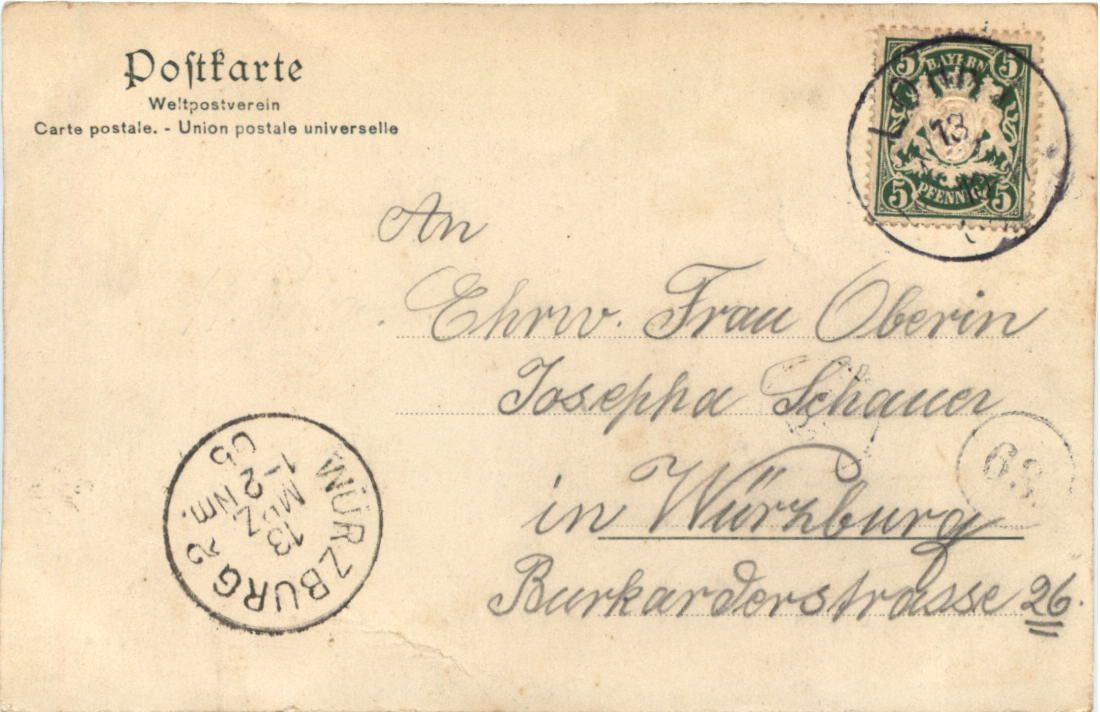 Postkarte
Weltpostverein
Carte postale. - Union postale universelle
5 5
BAYERN
13
5 5
PFENNIG
An
Ehrw. Frau Oberin
Josepha Schauer
in Würzburg
Burkarderstrasse 26.
WÜRZBURG 2
13
MRZ
1-2 Nm.
05
63